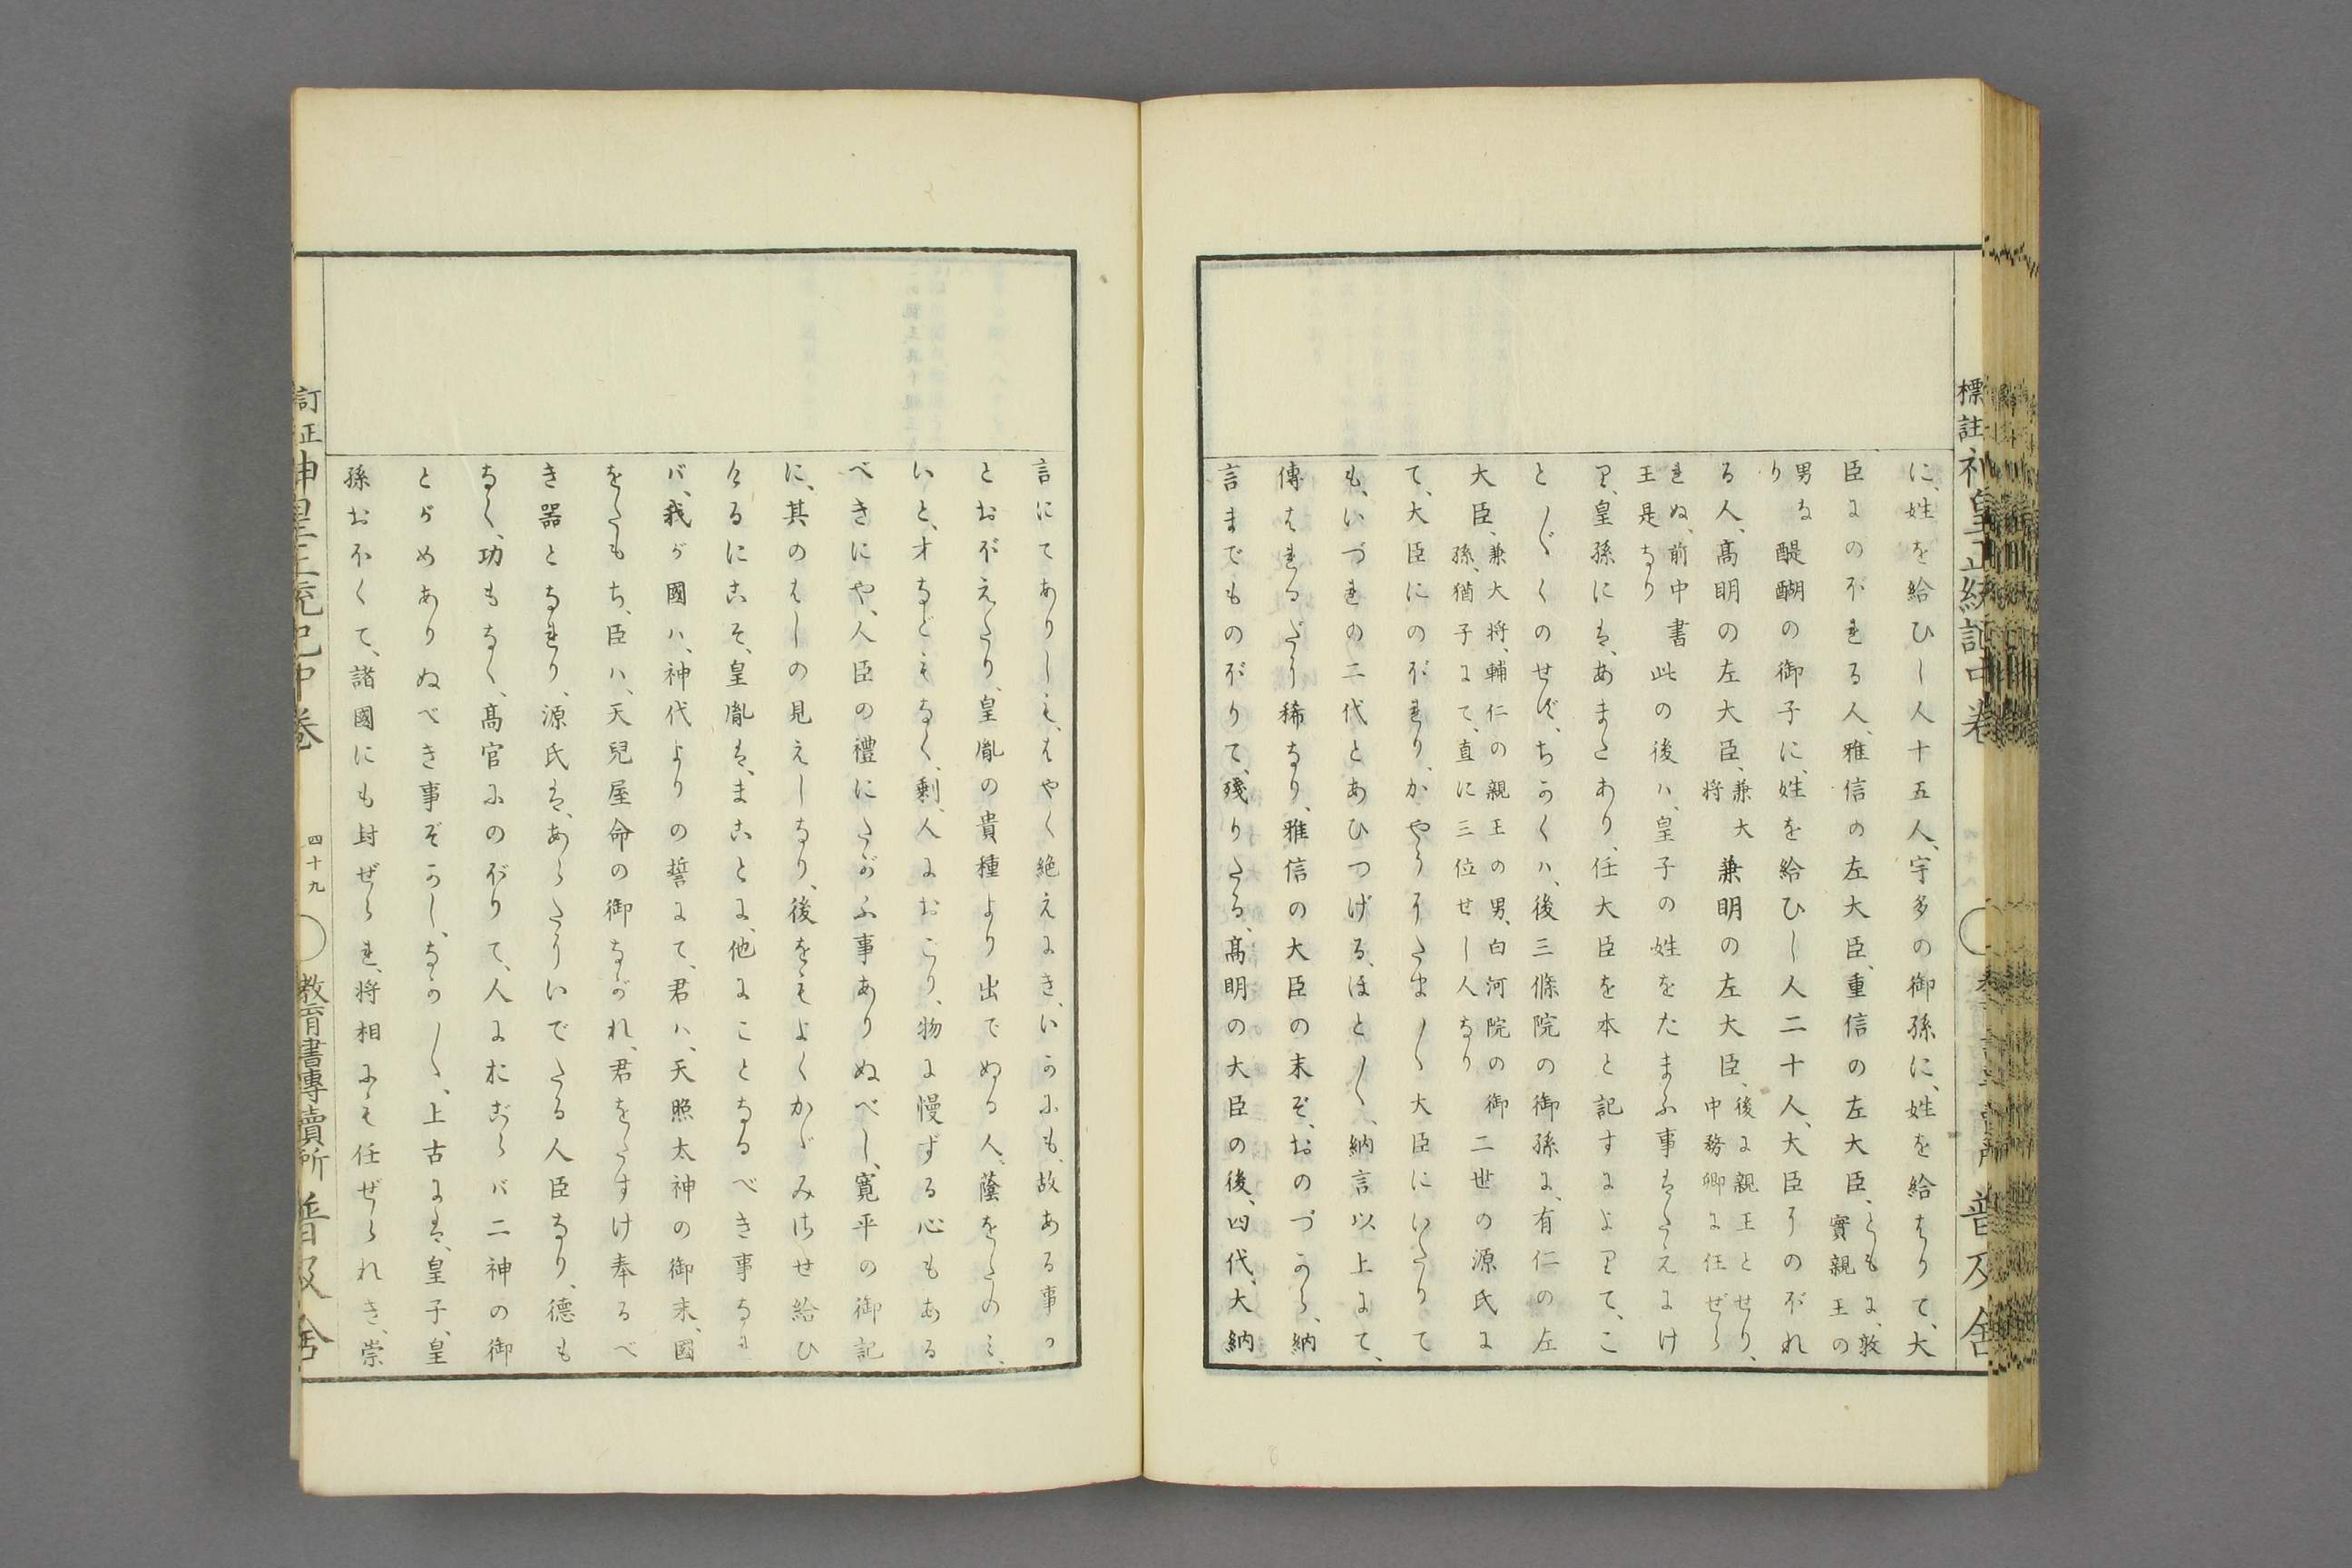 標註 神皇正統記中卷
普及舍
に、姓を給ひし人十五人、宇多の御孫に、姓を給はりて、大
臣にのぼれる人、雅信の左大臣、重信の左大臣、ともに、敦實親王の
男な り 醍醐の御子に、姓を給ひし人二十人、大臣にのぼれ
る人、高明の左大臣、兼大將 兼明の左大臣、後に親王とせり、中務卿に任ぜら
れぬ、前中書王是なり 此の後ハ、皇子の姓をたまふ事はたえにけ
り、皇孫には、あまたあり、任大臣を本と記すによりて、こ
と〲くのせず、ちかくハ、後三條院の御孫に、有仁の左
大臣、兼大將、輔仁の親王の男、白河院の御孫、猶子にて、直に三位せし人なり 二世の源氏に
て、大臣にのぼれり、かやうにたま〳〵大臣にいたりて
も、いづれの二代とあひつげる、ほと〳〵、納言以上にて、
傳はれるだに稀なり、雅信の大臣の末ぞ、おのづから、納
言までものぼりて、殘りたる、高明の大臣の後、四代、大納
言にてありしも、はやく絶えにき、いかにも、故ある事か
とおぼえたり、皇胤の貴種より出でぬる人、蔭をたのミ、
いと、才などもなく、剩、人におごり、物に慢ずる心もある
べきにや、人臣の禮にたがふ事ありぬべし、寬平の御記
に、其のはしの見えしなり、後をもよくかゞみさせ給ひ
けるにこそ、皇胤は、まことに、他にことなるべき事なれ
バ、我が國ハ、神代よりの誓にて、君ハ、天照太神の御末、國
をたもち、臣ハ、天兒屋命の御ながれ、君をたすけ奉るべ
き器となれり、源氏は、あらたにいでたる人臣なり、德も
なく、功もなく、高官にのぼりて、人におごらバ二神の御
とがめありぬべき事ぞかし、なか〳〵、上古には、皇子、皇
孫おほくて、諸國にも封ぜられ、將相にも任ぜられき、崇
訂正 神皇正統記中卷
四十九
教育書專賣所 普及舍